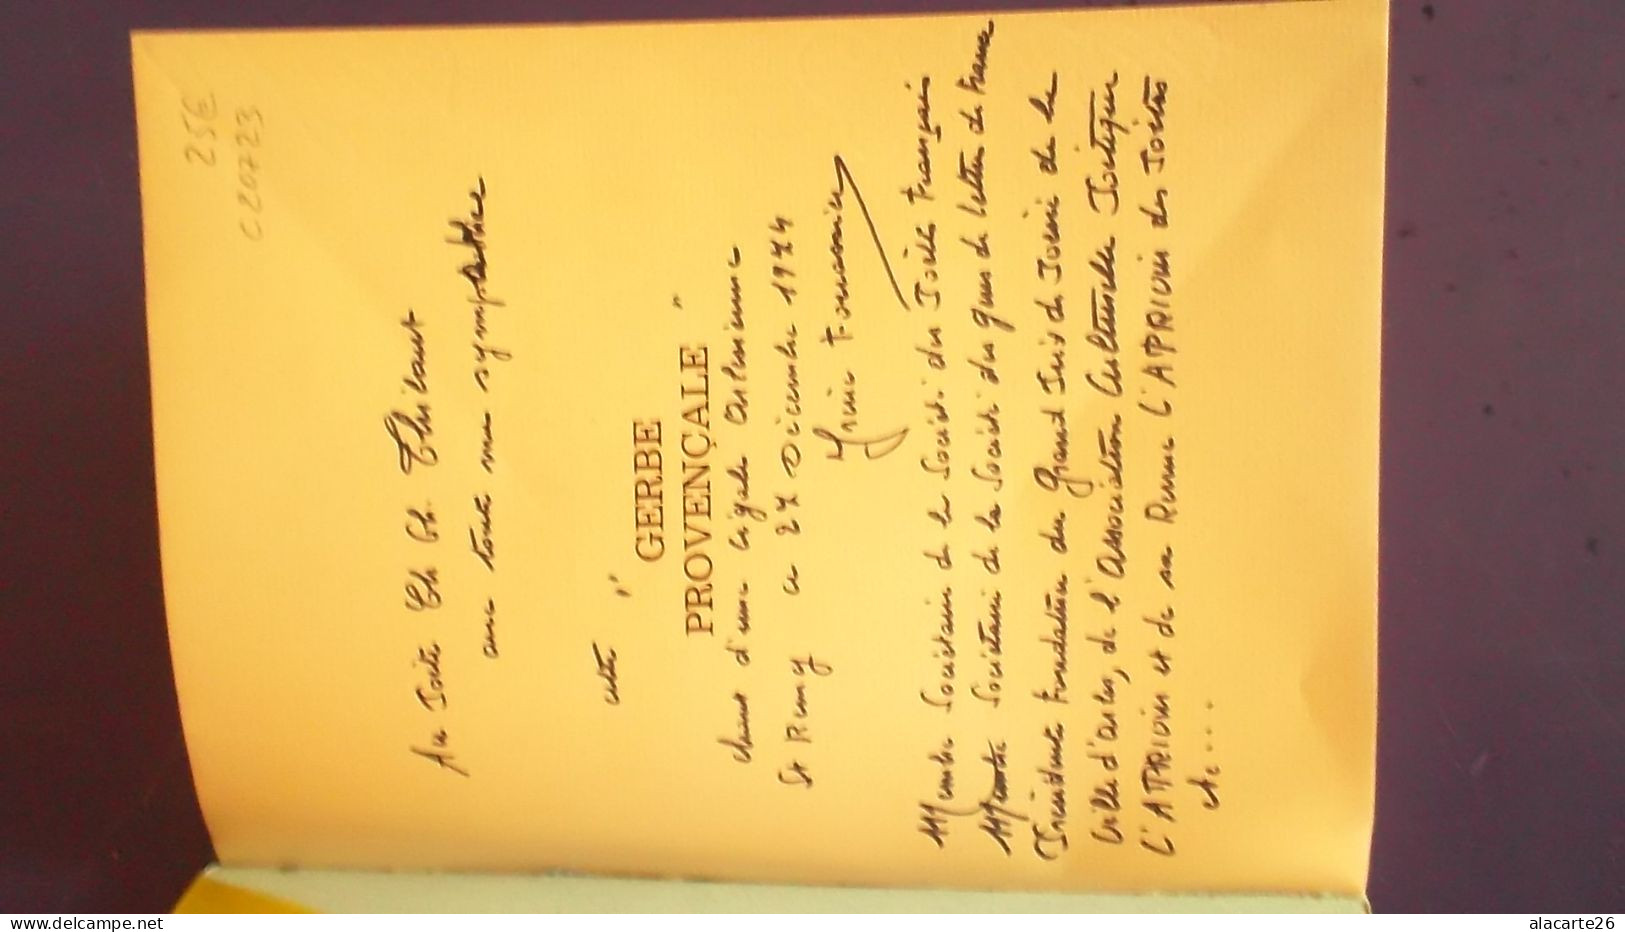 25€
C220723
Au Poète Th Ch. Thibaut
avec toute ma sympathie
cette "
GERBE
PROVENÇALE "
d'une Cigale Arlésienne
St Remy ce 27 Décembre 1974
Irène Fournier
Membre Sociétaire de la Société des Poètes Français
Membre Sociétaire de la Société des gens de Lettres de France
Présidente Fondatrice du Grand Prix de Poésie de la
Ville d'Arles, de l'Association Culturelle Poétique
L'APPRIVOIS et de sa Revue L'APPRIVOIS des Poètes
etc....
delcampe.net
alacarte26